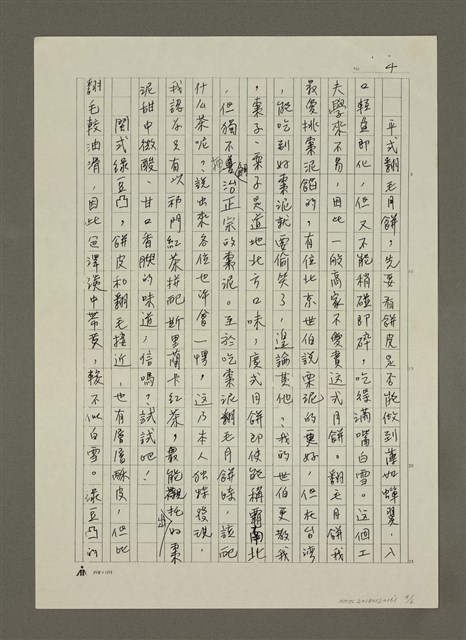 4
平式翻毛月餅，先要看餅皮是否能做到薄如蟬翼，入
口輕盈即化，但又不能稍碰即碎，吃得滿嘴白雪。這個工
夫學來不易，因此一般商家不愛賣這式月餅。翻毛月餅我
最愛挑棗泥餡的，有位北京世伯說栗泥的更好，但在台灣
，能吃到好棗泥就要偷笑了，遑論其他？我的世伯更教我
，棗子、栗子是道地北方口味，廣式月餅即使能稱霸南北
，但獨不善治正宗的棗泥。至於吃棗泥翻毛月餅時，該配
什么茶呢？說出來各位也許會一愕，這乃本人獨蝶發現，
我認為只有以祁門紅茶拼配斯里蘭卡紅茶，最能襯托出的棗
泥甜中微酸、甘口香腴的味道，信嗎？試試吧！
閩式綠豆凸，餅皮和翻毛接近，也有層層酥皮，但比
翻毛較油滑，因此色澤淡中帶黃，較不似白雪。綠豆凸的